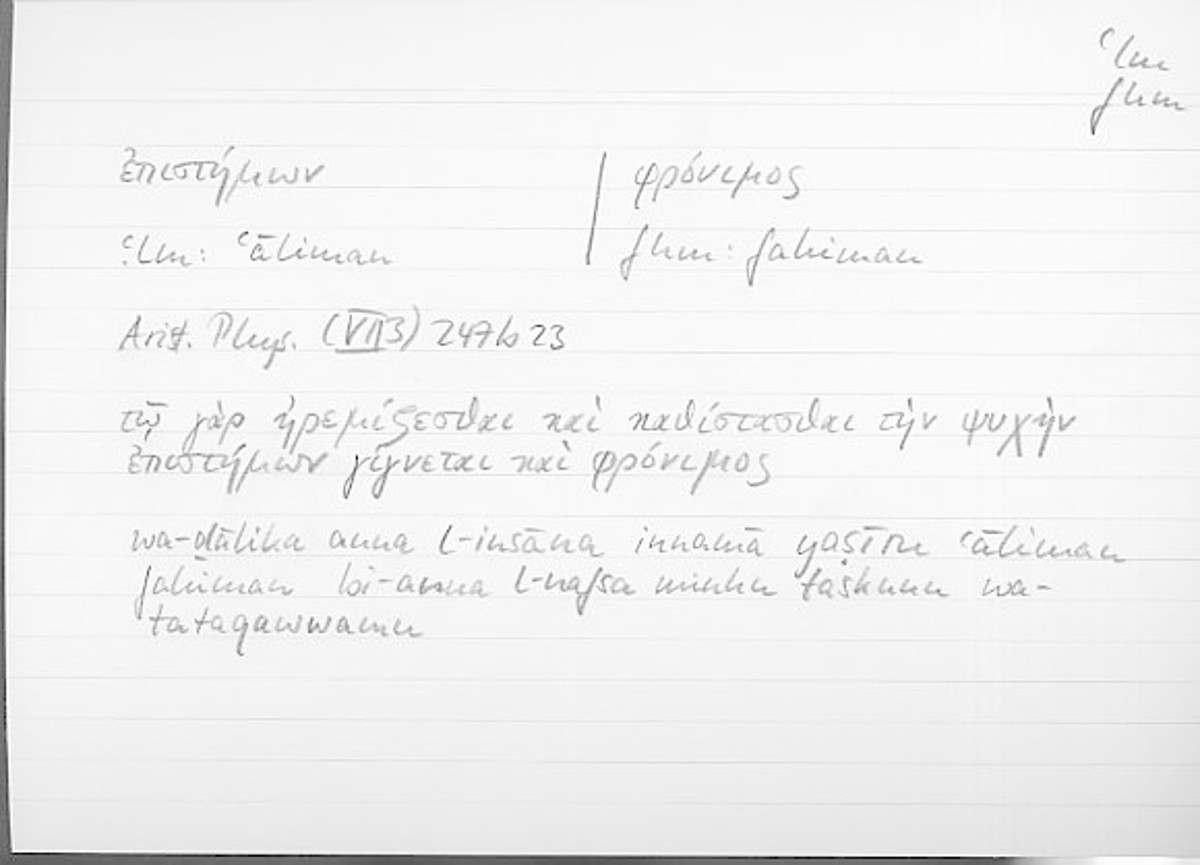 ʿlm
fhm
ἐπιστήμων | φρόνιμος
ʿlm: ʿāliman | fhm: fahiman
Arist. Phys. (VII3) 247b23
τῷ γὰρ ἠρεμίζεσθαι καὶ καθίστασθαι τὴν ψυχὴν
ἐπιστήμων γίγνεται καὶ φρόνιμος
wa-ḏālika anna l-insāna innamā yaṣīru ʿāliman
fahiman bi-anna l-nafsa minhu taskunu wa-
tataqawwamu